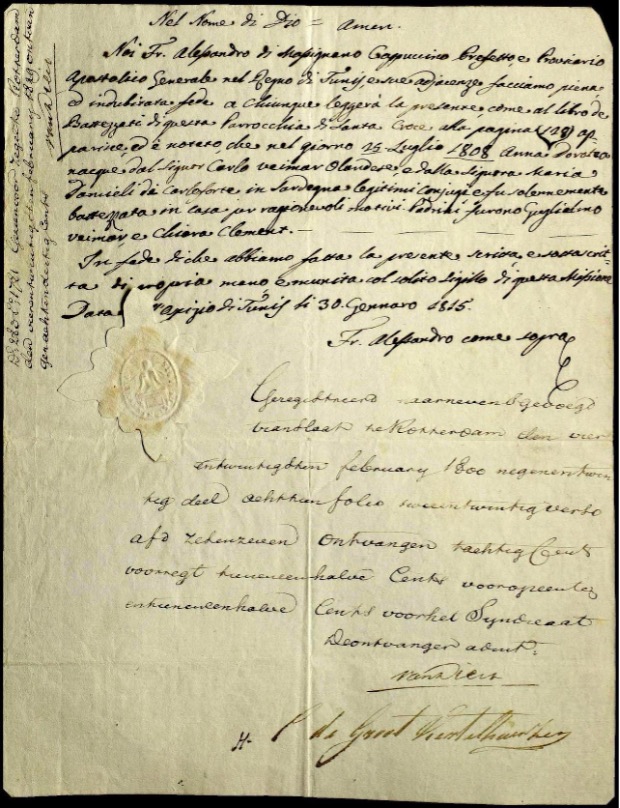 Nel Nome di Dio = Amen.
Noi Fr. Alessandro di Massignano Cappuccino Prefetto, e Provicario
Apostolico Generale nel Regno di Tunis, e sue adjacenze facciamo piena
ed indubitata fede a chiunque leggerà la presente, come al libro de
Battezzati di questa Parrocchia di Santa Croce alla pagina (128) ap-
parisce, ed è notato, che nel giorno 25 Luglio 1808 Anna Dorotea
nacque dal Signor Carlo Veimar Olandese, e dalla Signora Maria
Danieli di Carloforte in Sardegna legitimi conjugi e fu solennemente
battezzata in casa per ragionevoli motivi Padrini furono Guglielmo
Veimar e Chiara Clement.
In fede di che abbiamo fatta la presente scritta, e sottoscrit-
ta di propria mano e munita col solito Sigillo di questa Missione
Data
Tunis li 30. Gennaro 1815.
Fr. Alessandro come sopra
Geregistreerd nevensgevoegd
te Rotterdam den vier
entwintigsten february 1800 negenentwin
tig deel achttien folio tweeentwintig verso
afd ontvangen tachtig Cents
voorregt tweeeneenhalve Cents
entweeeneenhalve Cents voor het Syndicaat
De ontvanger
H.
de Groot
Rotterdam
den vierentwintigsten february